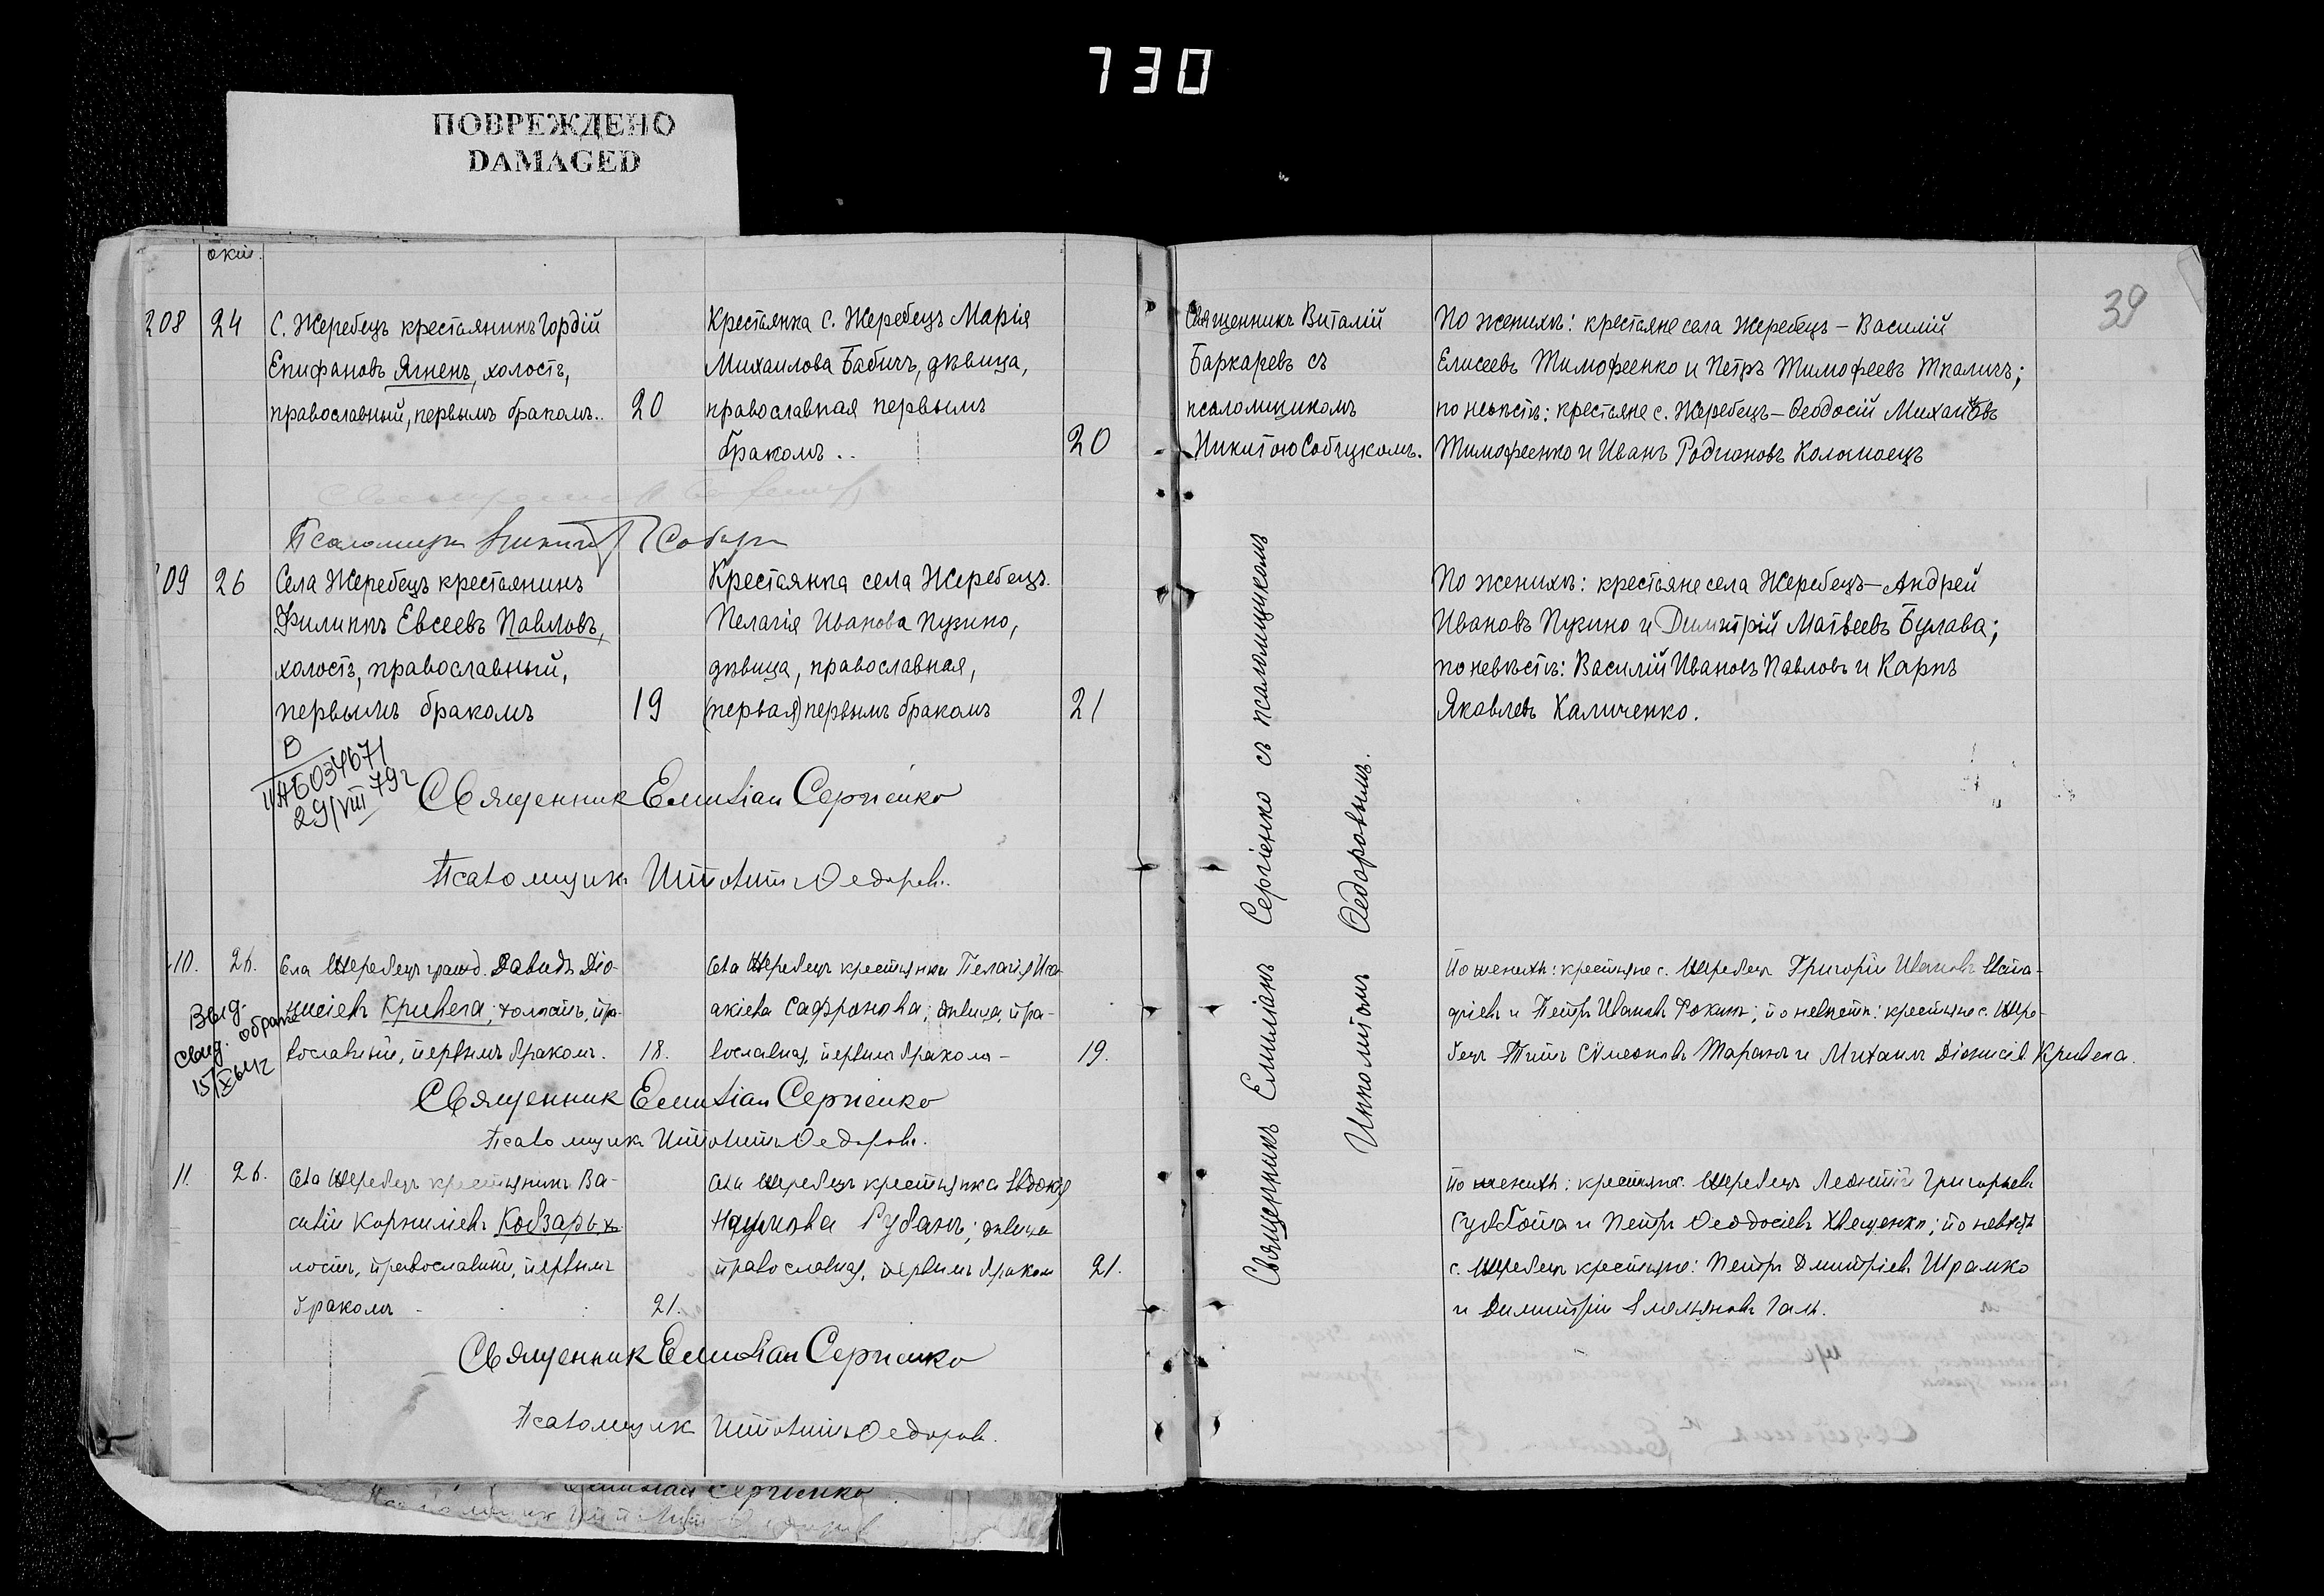 730
ПОВРЕЖДЕНО
DAMAGED
39
208
24
С. Жеребецъ крестьянинъ Гордій
Епифановъ Ягненъ, холостъ,
православный, первымъ бракомъ..
20
Крестьянка с. Жеребецъ Марія
Михаилова Бабичъ, дѣвица,
православная первымъ
бракомъ..
20
Священникъ Виталій
Баркаревъ съ
псаломщикомъ
Никитою Собчукомъ.
По женихѣ: крестьяне села Жеребецъ – Василій
Елисеевъ Тимофеенко и Петръ Тимофеевъ Ткаличъ;
по невѣстѣ: крестьяне с. Жеребецъ – Ѳеодосій
Тимофеенко и Иванъ Родионовъ Коломоецъ
09
26
Села Жеребецъ крестьянинъ
Филиппъ Евсеевъ Павловъ,
холостъ, православный,
первымъ бракомъ
19
Крестьянка села Жеребецъ
Пелагія Иванова Пузино,
дѣвица, православная,
(первая) первымъ бракомъ
21
По женихѣ: крестьяне села Жеребецъ – Андрей
Ивановъ Пузино и Димитрій Матвеевъ Булава;
по невѣстѣ: Василій Ивановъ Павловъ и Карпъ
Яковлевъ Халиченко.
В
II АБ 034671
29/VIII 79г
Священник Емилian Сергіенко
Псаломщик Ипполитъ Ѳедоровъ.
Священникъ Емиліанъ Сергіенко съ псаломщикомъ
Ипполитомъ Ѳедоровымъ.
10.
26.
Села Жеребецъ гражд. Давидъ Діо-
нисіевъ Кривега; холостъ, пра-
вославный, первымъ бракомъ.
18.
Села Жеребецъ крестьянка Пелагія Иса-
акіева Сафронова; дѣвица, пра-
вославная, первымъ бракомъ –
19.
По женихѣ: крестьяне с. Жеребецъ Григорій Ивановъ
и Петръ Ивановъ Фокинъ; по невѣстѣ: крестьяне с. Жере-
бецъ Титъ Симеоновъ Таранъ и Михаилъ Діонисіев. Кривега.
Выд.
свид. о браке
15/X 64г
Священник Емилian Сергіенко
Псаломщик Ипполитъ Ѳедоровъ.
11.
26.
Села Жеребецъ крестьянинъ Ва-
силій Корниліевъ Кобзарь, хо-
лостъ, православный, первымъ
бракомъ
21.
Села Жеребецъ крестьянка Евдокія
Наумова Губанъ; дѣвица
православная, первымъ бракомъ
21.
По женихѣ: крестьяне с. Жеребецъ Леонтій Григорьевъ
Суббота и Петръ Ѳеодосіевъ Хвещенко; по невѣстѣ
с. Жеребецъ крестьяне: Петръ Дмитріевъ Шрамко
и Димитрій Емельяновъ Галь.
Священник Емилian Сергіенко
Псаломщик Ипполитъ Ѳедоровъ.